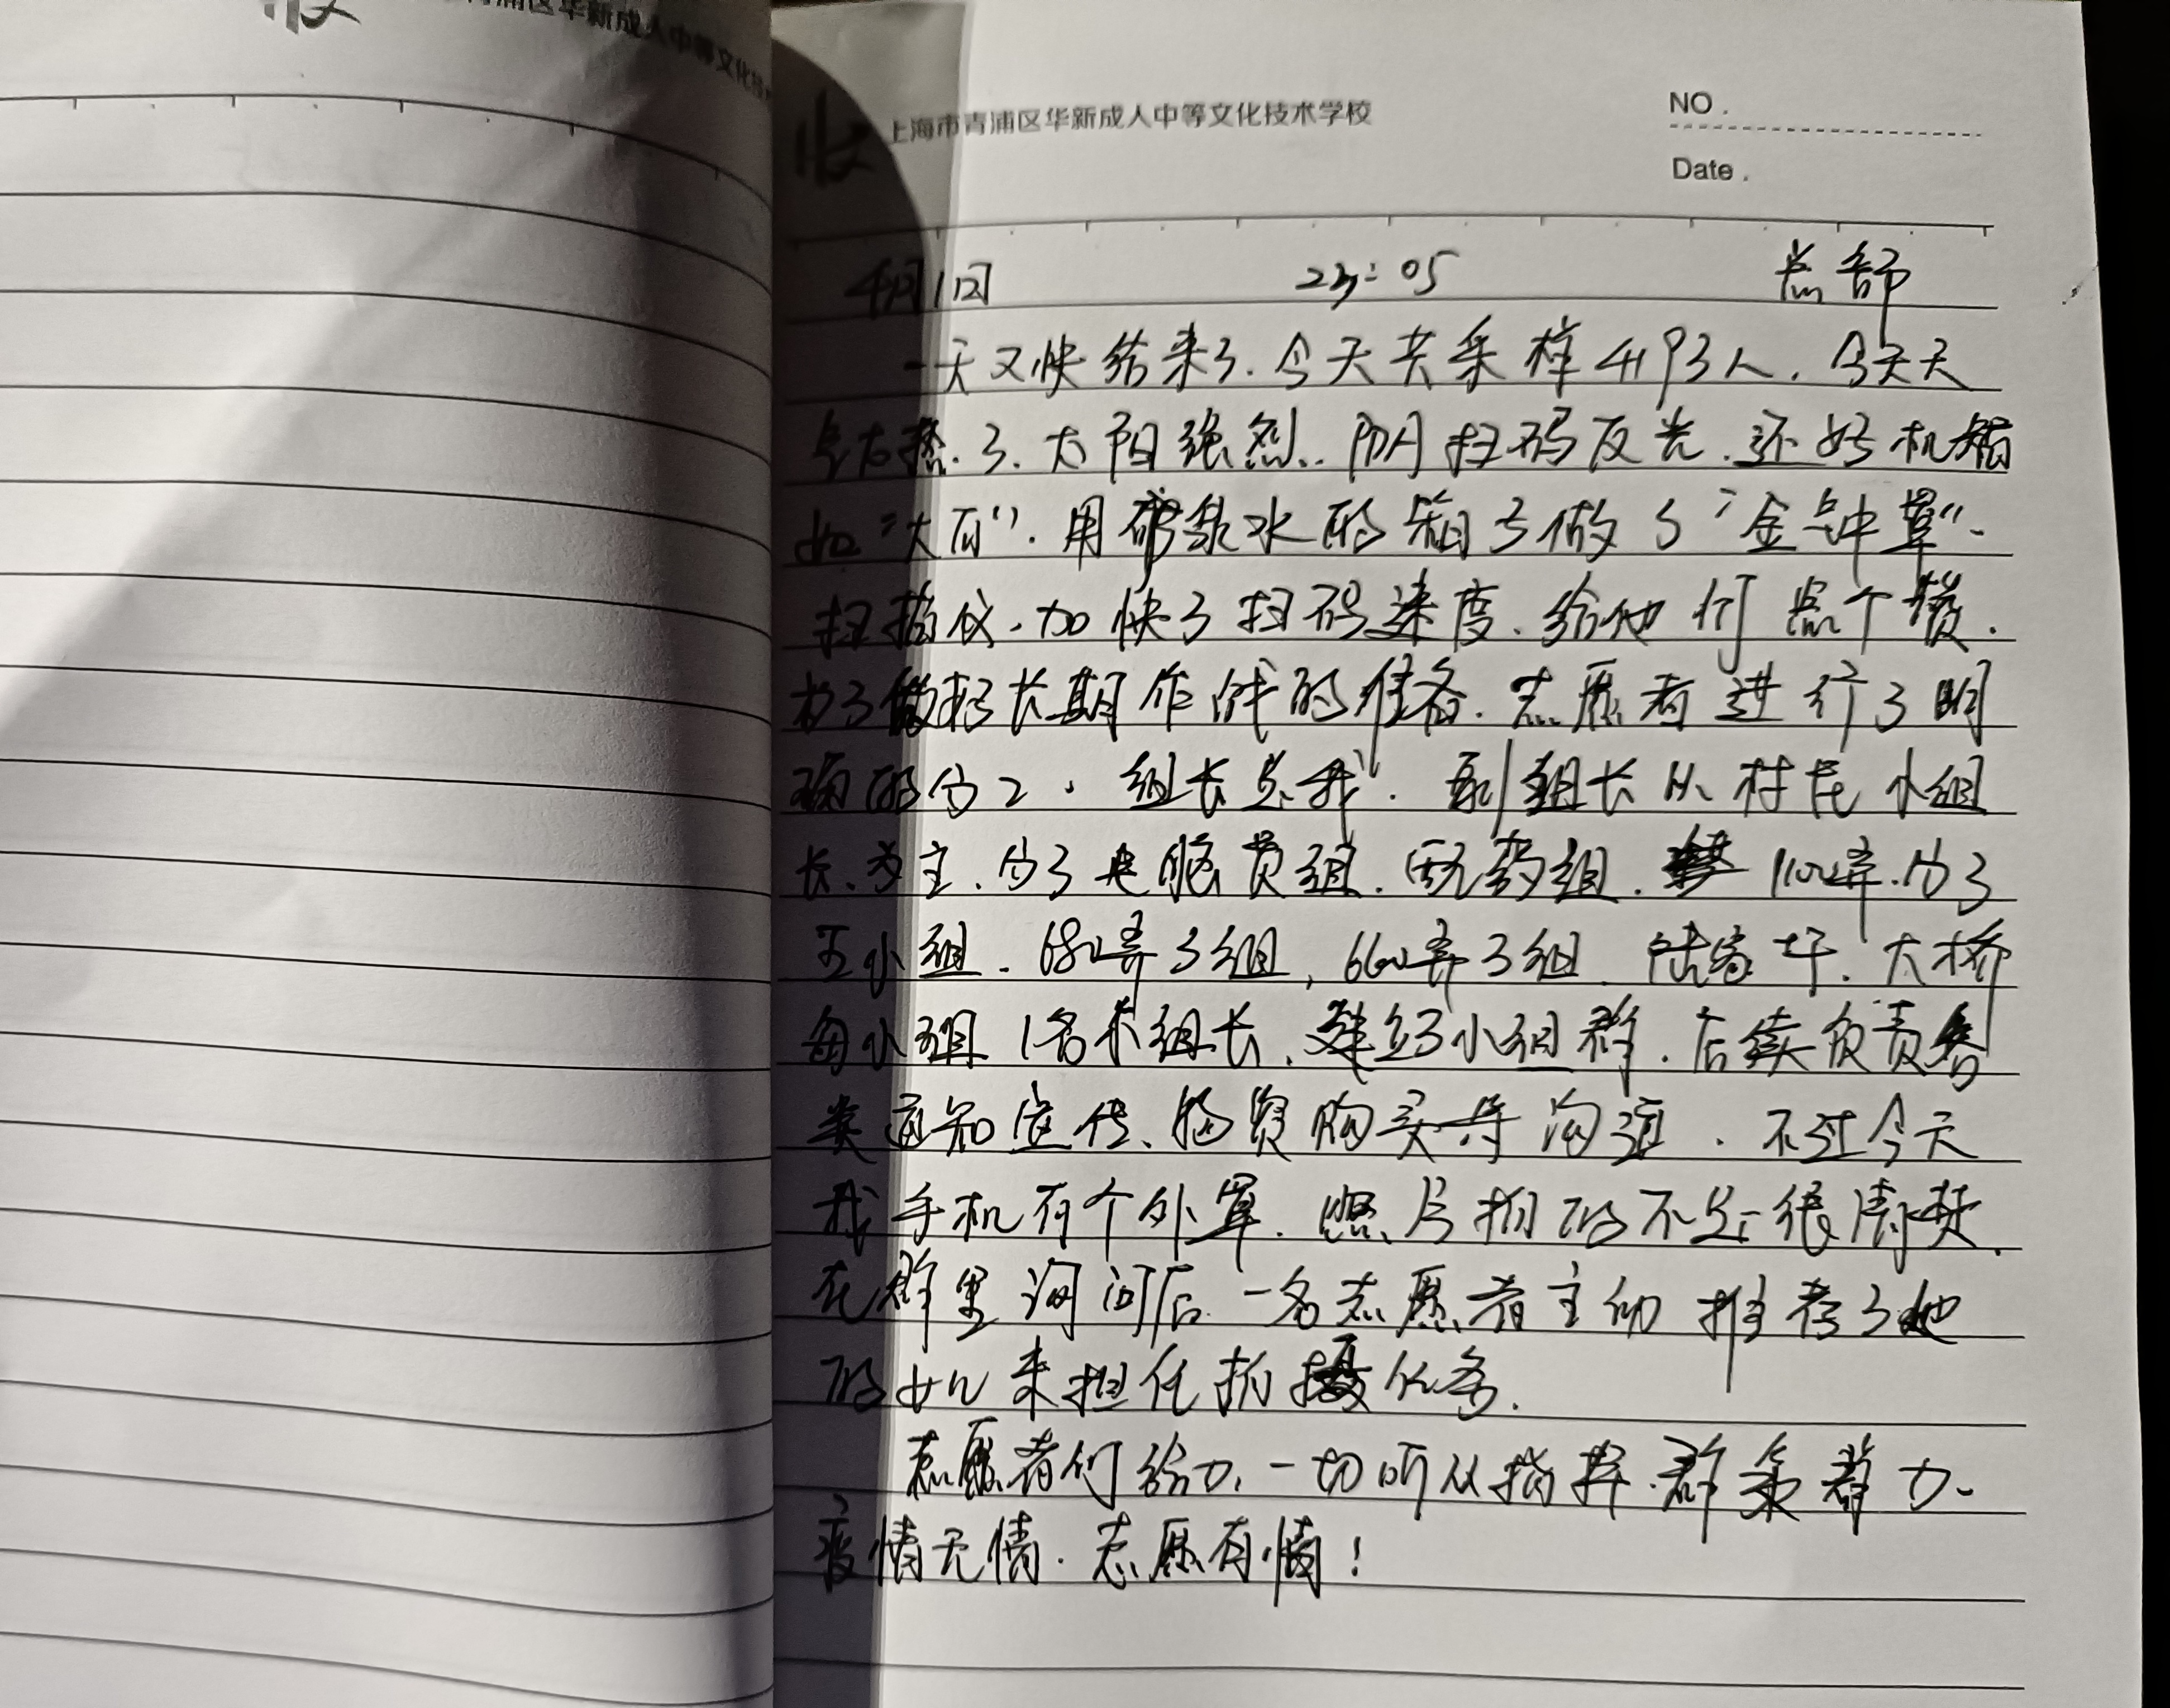 青浦区华新成人中等文化技
上海市青浦区华新成人中等文化技术学校
NO.
Date.
4月1日 23:05 总部
一天又快结束了.今天共采样4193人.今天天
气太热了.太阳强烈.阴扫码反光.还好机智
如"大白".用矿泉水的箱子做了"金钟罩"
扫描仪.加快了扫码速度.给他们点个赞.
为了做好长期作战的准备.志愿者进行了明
确的分工.组长是我.副组长从村民小组
长为主.分了电脑员组.配药组.1100弄.分了
五小组.680弄3组,660弄3组.陆家圩.大桥
每小组1名小组长.建立了小组群.后续负责各
类通知宣传、物资购买等沟通.不过今天
我手机有个外罩.照片拍的不是很清楚.
在群里询问后.一名志愿者主动推荐了她
的女儿来担任拍摄任务.
志愿者们给力.一切听从指挥.群策群力.
疫情无情.志愿有情!